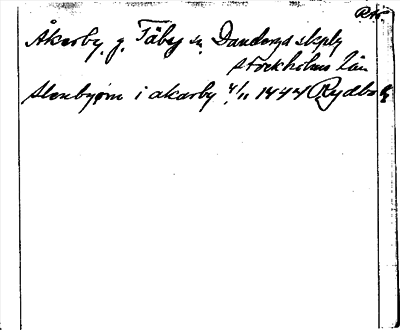 Åkerby, g. Täby sn Danderyds skplg
Stockholms län
stenbyørn i akarby 4/11 1444 Rydbo